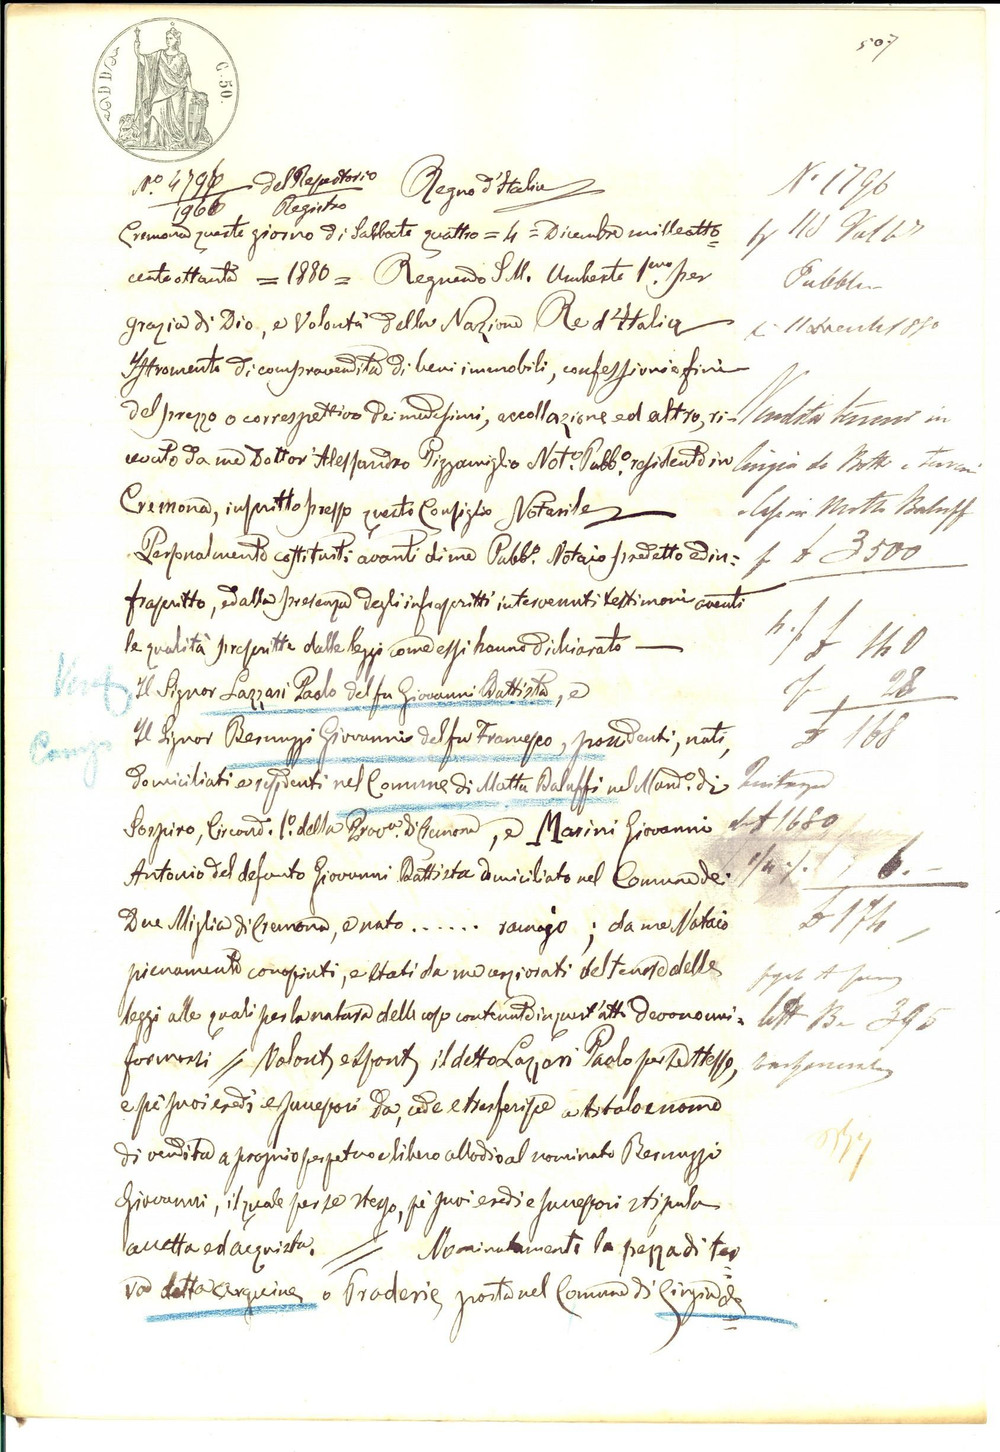 507
C. 50.
N.o 4796 del Repertorio Regno d'Italia
1966 Registro
Cremona questo giorno di Sabbato quattro = 4 = Dicembre milleotto=
centottanta = 1880 = Regnando S.M. Umberto Imo. per
grazia di Dio, e Volontà della Nazione Re d'Italia
Istromento di compravendita di beni immobili, confessioni e fini
del prezzo o correspettivo dei medesimi, accollazione ed altro, ri-
cevuto da me Dottor Alessandro Pizzamiglio Not.o Pubb.o residente in
Cremona, inscritto presso questo Consiglio Notarile
Personalmente costituiti avanti di me Pubb.o Notaio predetto ed in=
frascritto, ed alla presenza degli infrascritti intervenuti testimoni aventi
le qualità prescritte dalle leggi come essi hanno dichiarato
Il Signor Lazzari Paolo del fu Giovanni Battista, e
Il Signor Bernuzzi Giovanni del fu Francesco, possidenti, nati,
domiciliati e residenti nel Comune di Motta Baluffi nel Mand.o di
Sospiro, Circond. I.o della Prov.a di Cremona, e Marini Giovanni
Antonio del defunto Giovanni Battista domiciliato nel Comune dei
Due Miglia di Cremona, e nato ...... ; da me Notaio
pienamente conosciuti, e stati da me cerziorati del tenore delle
leggi alle quali per la natura delle cose contenute in quest'atti devono uni=
formarsi // Volont. e spont. il detto Lazzari Paolo per se stesso,
e pe' suoi eredi e successori da, cede e trasferisce a titolo e nome
di vendita a proprio perpetuo e libero allodio al nominato Bernuzzi
Giovanni, il quale per se stesso, pe' suoi eredi e successori stipula
accetta ed acquista. // Nominatamente la pezza di ter=
ra detta o Praderie posta nel Comune di Cingia de=
N.o 1796
Pubbl
11 Dicembre 1880
Vendita terreni in
Cingia de Botti e terreni
e Case in Motta Baluffi
£ 3500
£ 140
28
£ 168
£ 1680
6. -
£ 174
395